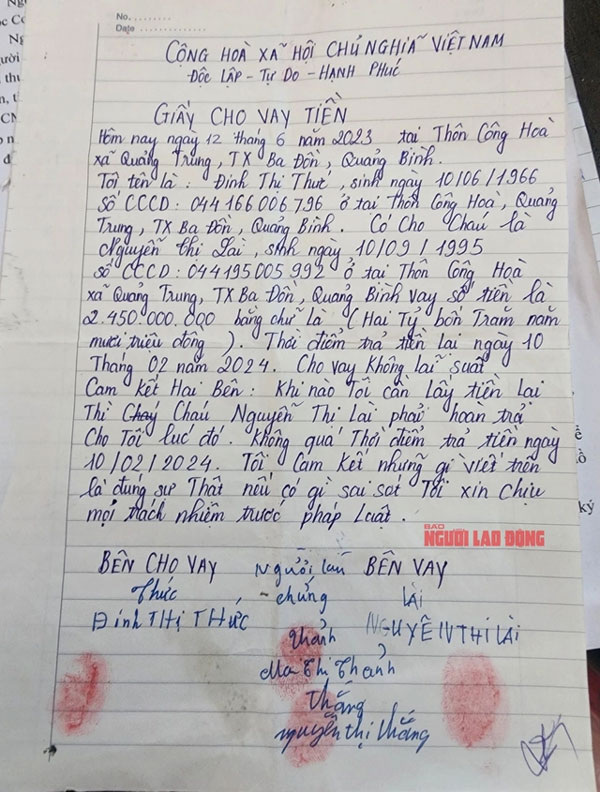 No. ........
Date ............
CỘNG HOÀ XÃ HỘI CHỦ NGHĨA VIỆT NAM
ĐỘC LẬP - TỰ DO - HẠNH PHÚC
GIẤY CHO VAY TIỀN
Hôm nay ngày 12 tháng 6 năm 2023 tại Thôn Công Hoà
xã Quảng Trung, TX Ba Đồn, Quảng Bình.
Tôi tên là: Đinh Thị Thức, sinh ngày 10/06/1966
Số CCCD: 044166006796 ở tại Thôn Công Hoà, Quảng
Trung, TX Ba Đồn, Quảng Bình. Có Cho Cháu là
Nguyễn Thị Lài, sinh ngày 10/09/1995
số CCCD: 044195005992 ở tại Thôn Công Hoà
xã Quảng Trung, TX Ba Đồn, Quảng Bình vay số tiền là
2.450.000.000 bằng chữ là (Hai Tỷ bốn Trăm năm
mươi triệu đồng). Thời điểm trả tiền lại ngày 10
Tháng 02 năm 2024. Cho vay Không lãi suất
Cam kết Hai Bên: Khi nào Tôi cần Lấy tiền Lại
Thì Cháu Nguyễn Thị Lài phải hoàn trả
Cho Tôi lúc đó. Không quá Thời điểm trả tiền ngày
10/02/2024. Tôi Cam Kết những gì viết trên
là đúng sự Thật nếu có gì sai sót Tôi xin Chịu
mọi trách nhiệm trước pháp Luật.
BÁO
NGƯỜI LAO ĐỘNG
BÊN CHO VAY Người làm BÊN VAY
Thức chứng LÀI
Đinh THị THức NGUYỄN THỊ LÀI
Thảnh
Ma Thị Thảnh
Thắng
nguyễn thị thắng
ký